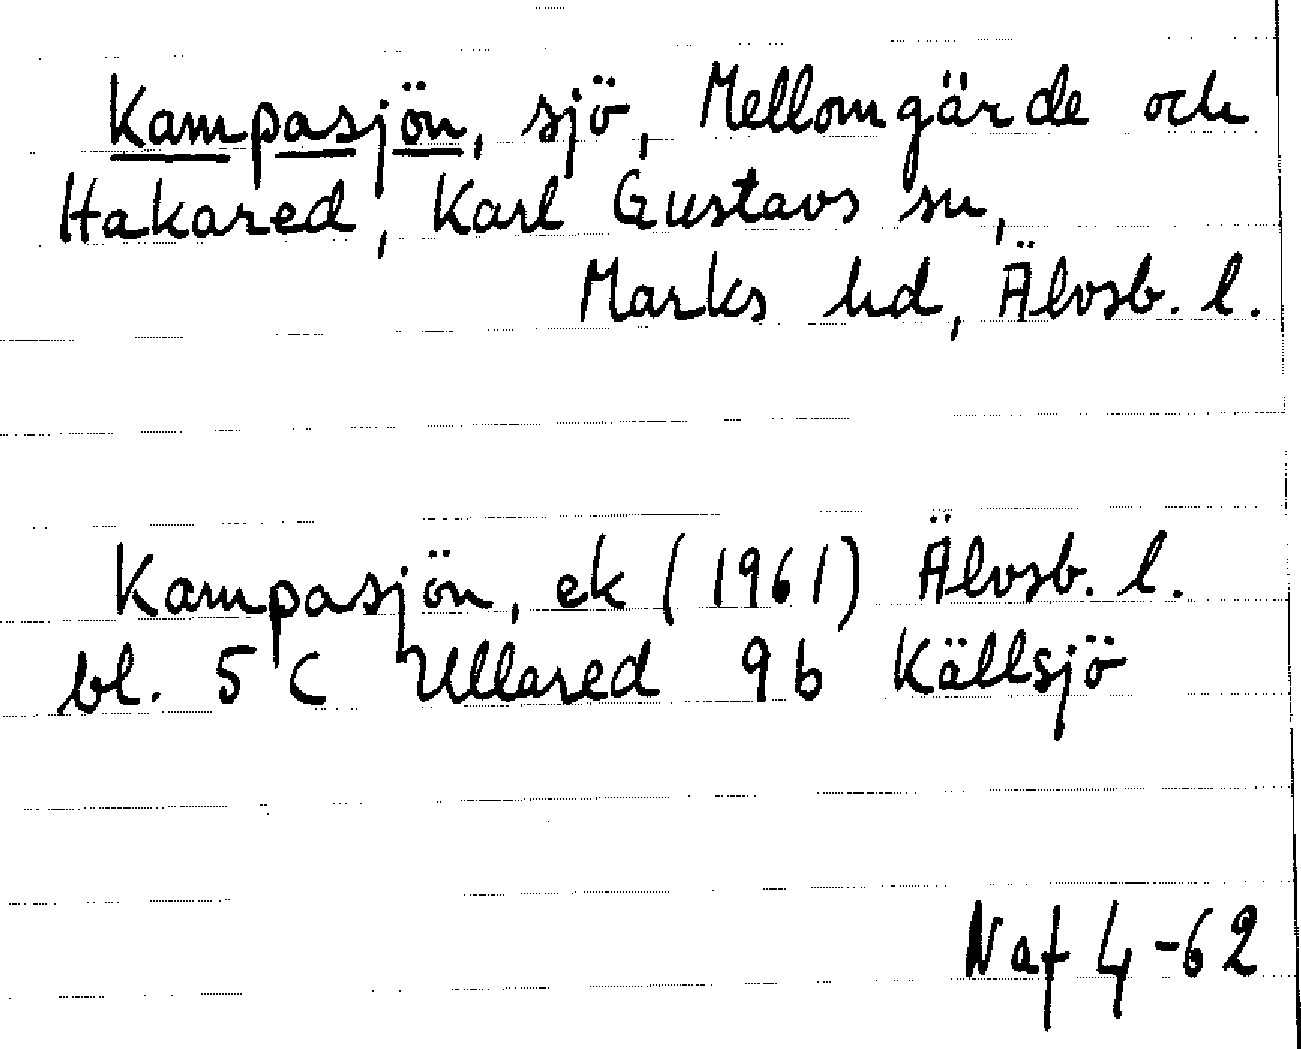 Kampasjön, sjö, Mellomgärde och
Hakared, Karl Gustavs sn,
Marks hd, Älvsb. l.
Kampasjön, ek (1961) Älvsb. l.
bl. 5 c Ullared 9 b Källsjö
Naf 4-62